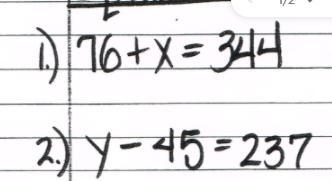 1/2
1.) 76+x = 344
2.) y - 45 = 237